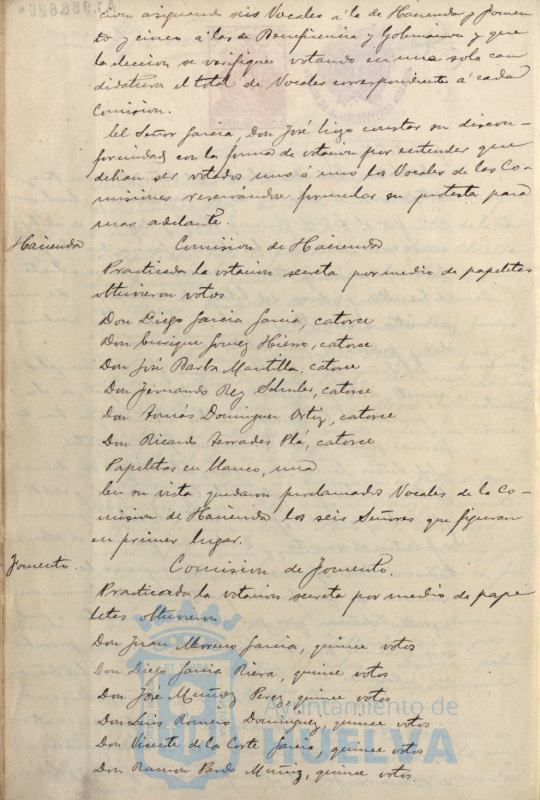 cion asignando seis Vocales á la de Hacienda y Fomen-
to y cinco á las de Beneficencia y Gobernacion y que
la eleccion se verifique votando en una sola can
didatura el total de Vocales correspondiente á cada
Comision.
El Señor Garcia, Don José hizo constar su discon-
formidad con la forma de votacion por entender que
debian ser votados uno á uno los Vocales de las Co-
misiones reservandose formular su protesta para
mas adelante.
Hacienda
Comision de Hacienda
Practicada la votacion secreta por medio de papeletas
obtuvieron votos
Don Diego Garcia Garcia, catorce
Don Enrique Gomez Hierro, catorce
Don José Barba Mantilla, catorce
Don Fernando Rey Schuler, catorce
Don Tomás Dominguez Ortiz, catorce
Don Ricardo Terrades Plá, catorce
Papeletas en blanco, una
En su vista quedaron proclamados Vocales de la Co-
mision de Hacienda los seis Señores que figuran
en primer lugar.
Fomento.
Comision de Fomento.
Practicada la votacion secreta por medio de pape
letas obtuvieron
Don Juan Moreno Garcia, quince votos
Don Diego Garcia Riera, quince votos
Don José Muñoz Perez, quince votos
Don Luis Romero Dominguez, quince votos
Don Vicente de la Corte Garcia, quince votos
Don Ramon Pardo Muñiz, quince votos.
Ayuntamiento de
HUELVA